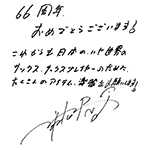 66周年
おめでとうございます!
これからも日本の、いや世界の
サックス、クラプレーヤーのために
たくさんのアイテム、
お願いします!